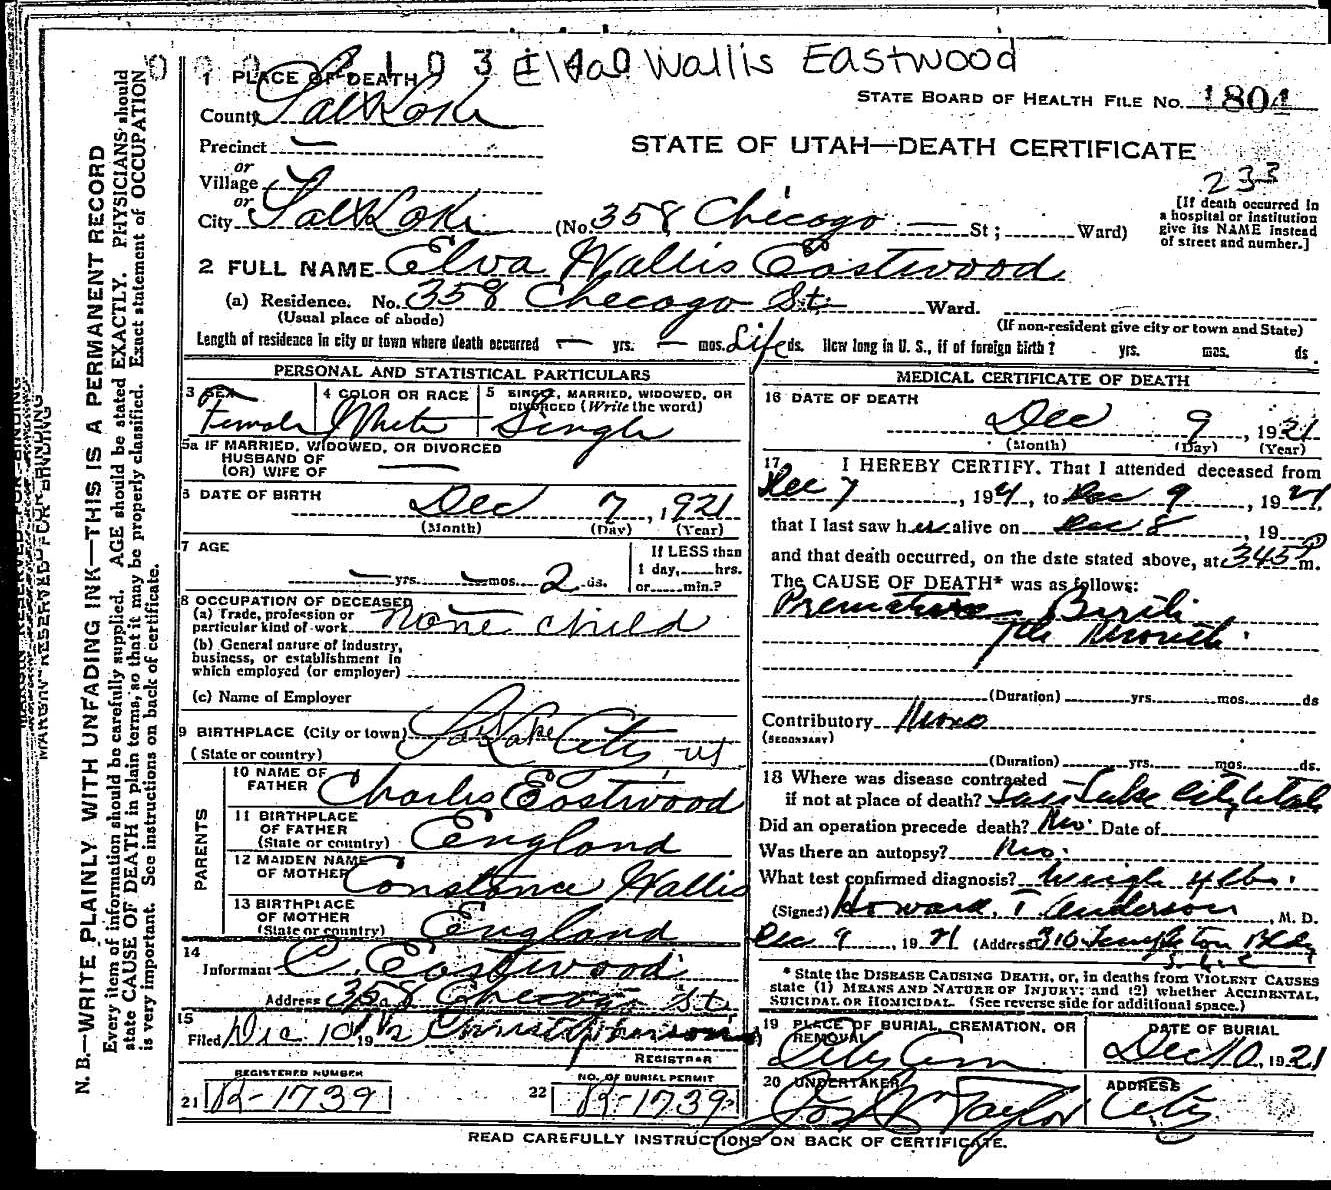 1 0 3 1 4 0 Elva Wallis Eastwood
STATE BOARD OF HEALTH FILE NO. 1804
STATE OF UTAH—DEATH CERTIFICATE
233
[If death occurred in a hospital or institution give its NAME instead of street and number.]
1 PLACE OF DEATH
County Salt Lake
Precinct —
or
Village
or
City Salt Lake (No. 358 Chicago St; Ward)
2 FULL NAME Elva Wallis Eastwood
(a) Residence. No. 358 Checago St. Ward.
(Usual place of abode) (If non-resident give city or town and State)
Length of residence in city or town where death occurred — yrs. — mos. Life ds. How long in U. S., if of foreign birth? yrs. mos. ds.
PERSONAL AND STATISTICAL PARTICULARS
3 SEX Female
4 COLOR OR RACE White
5 SINGLE, MARRIED, WIDOWED, OR DIVORCED (Write the word) Single
5a IF MARRIED, WIDOWED, OR DIVORCED
HUSBAND OF
(OR) WIFE OF —
6 DATE OF BIRTH Dec 7, 1921
(Month) (Day) (Year)
7 AGE — yrs. — mos. 2 ds.
If LESS than
1 day, hrs.
or min.?
8 OCCUPATION OF DECEASED
(a) Trade, profession or
particular kind of work none child
(b) General nature of industry,
business, or establishment in
which employed (or employer)
(c) Name of Employer
9 BIRTHPLACE (City or town) Salt Lake City ut
(State or country)
PARENTS
10 NAME OF FATHER Charles Eastwood
11 BIRTHPLACE OF FATHER (State or country) England
12 MAIDEN NAME OF MOTHER Constance Wallis
13 BIRTHPLACE OF MOTHER (State or country) England
14
Informant C. Eastwood
Address 358 Checago St.
15
Filed Dec. 10 19
REGISTRAR
REGISTERED NUMBER
21 R-1739
NO. OF BURIAL PERMIT
22 R-1739
MEDICAL CERTIFICATE OF DEATH
16 DATE OF DEATH
Dec 9, 1921
(Month) (Day) (Year)
17 I HEREBY CERTIFY. That I attended deceased from
Dec 7, 1921, to Dec 9, 1921,
that I last saw her alive on Dec 8, 19
and that death occurred, on the date stated above, at 345 P m.
The CAUSE OF DEATH* was as follows:
Premature Birth
7th Month.
(Duration) yrs. mos. ds
Contributory None
(SECONDARY)
(Duration) yrs. mos. ds.
18 Where was disease contracted
if not at place of death? Salt Lake City Utah
Did an operation precede death? No. Date of
Was there an autopsy? No.
What test confirmed diagnosis? Weigh 4 lbs.
(Signed) Howard T Anderson, M. D.
Dec 9, 1921 (Address) 316 Templeton Bldg
* State the DISEASE CAUSING DEATH, or, in deaths from VIOLENT CAUSES
state (1) MEANS AND NATURE OF INJURY; and (2) whether ACCIDENTAL,
SUICIDAL OR HOMICIDAL. (See reverse side for additional space.)
19 PLACE OF BURIAL, CREMATION, OR REMOVAL City Cem
DATE OF BURIAL Dec 10, 1921
20 UNDERTAKER Jos. Taylor
ADDRESS City
READ CAREFULLY INSTRUCTIONS ON BACK OF CERTIFICATE.
MARGIN RESERVED FOR BINDING
N. B.—WRITE PLAINLY, WITH UNFADING INK—THIS IS A PERMANENT RECORD
Every item of information should be carefully supplied. AGE should be stated EXACTLY. PHYSICIANS should
state CAUSE OF DEATH in plain terms, so that it may be properly classified. Exact statement of OCCUPATION
is very important. See instructions on back of certificate.